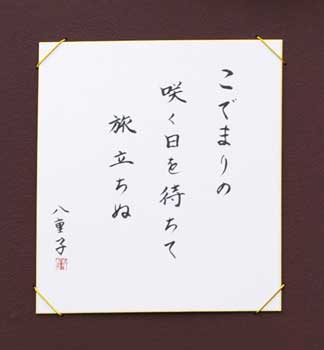 こでまりの
咲く日を待ちて
旅立ちぬ
八重子